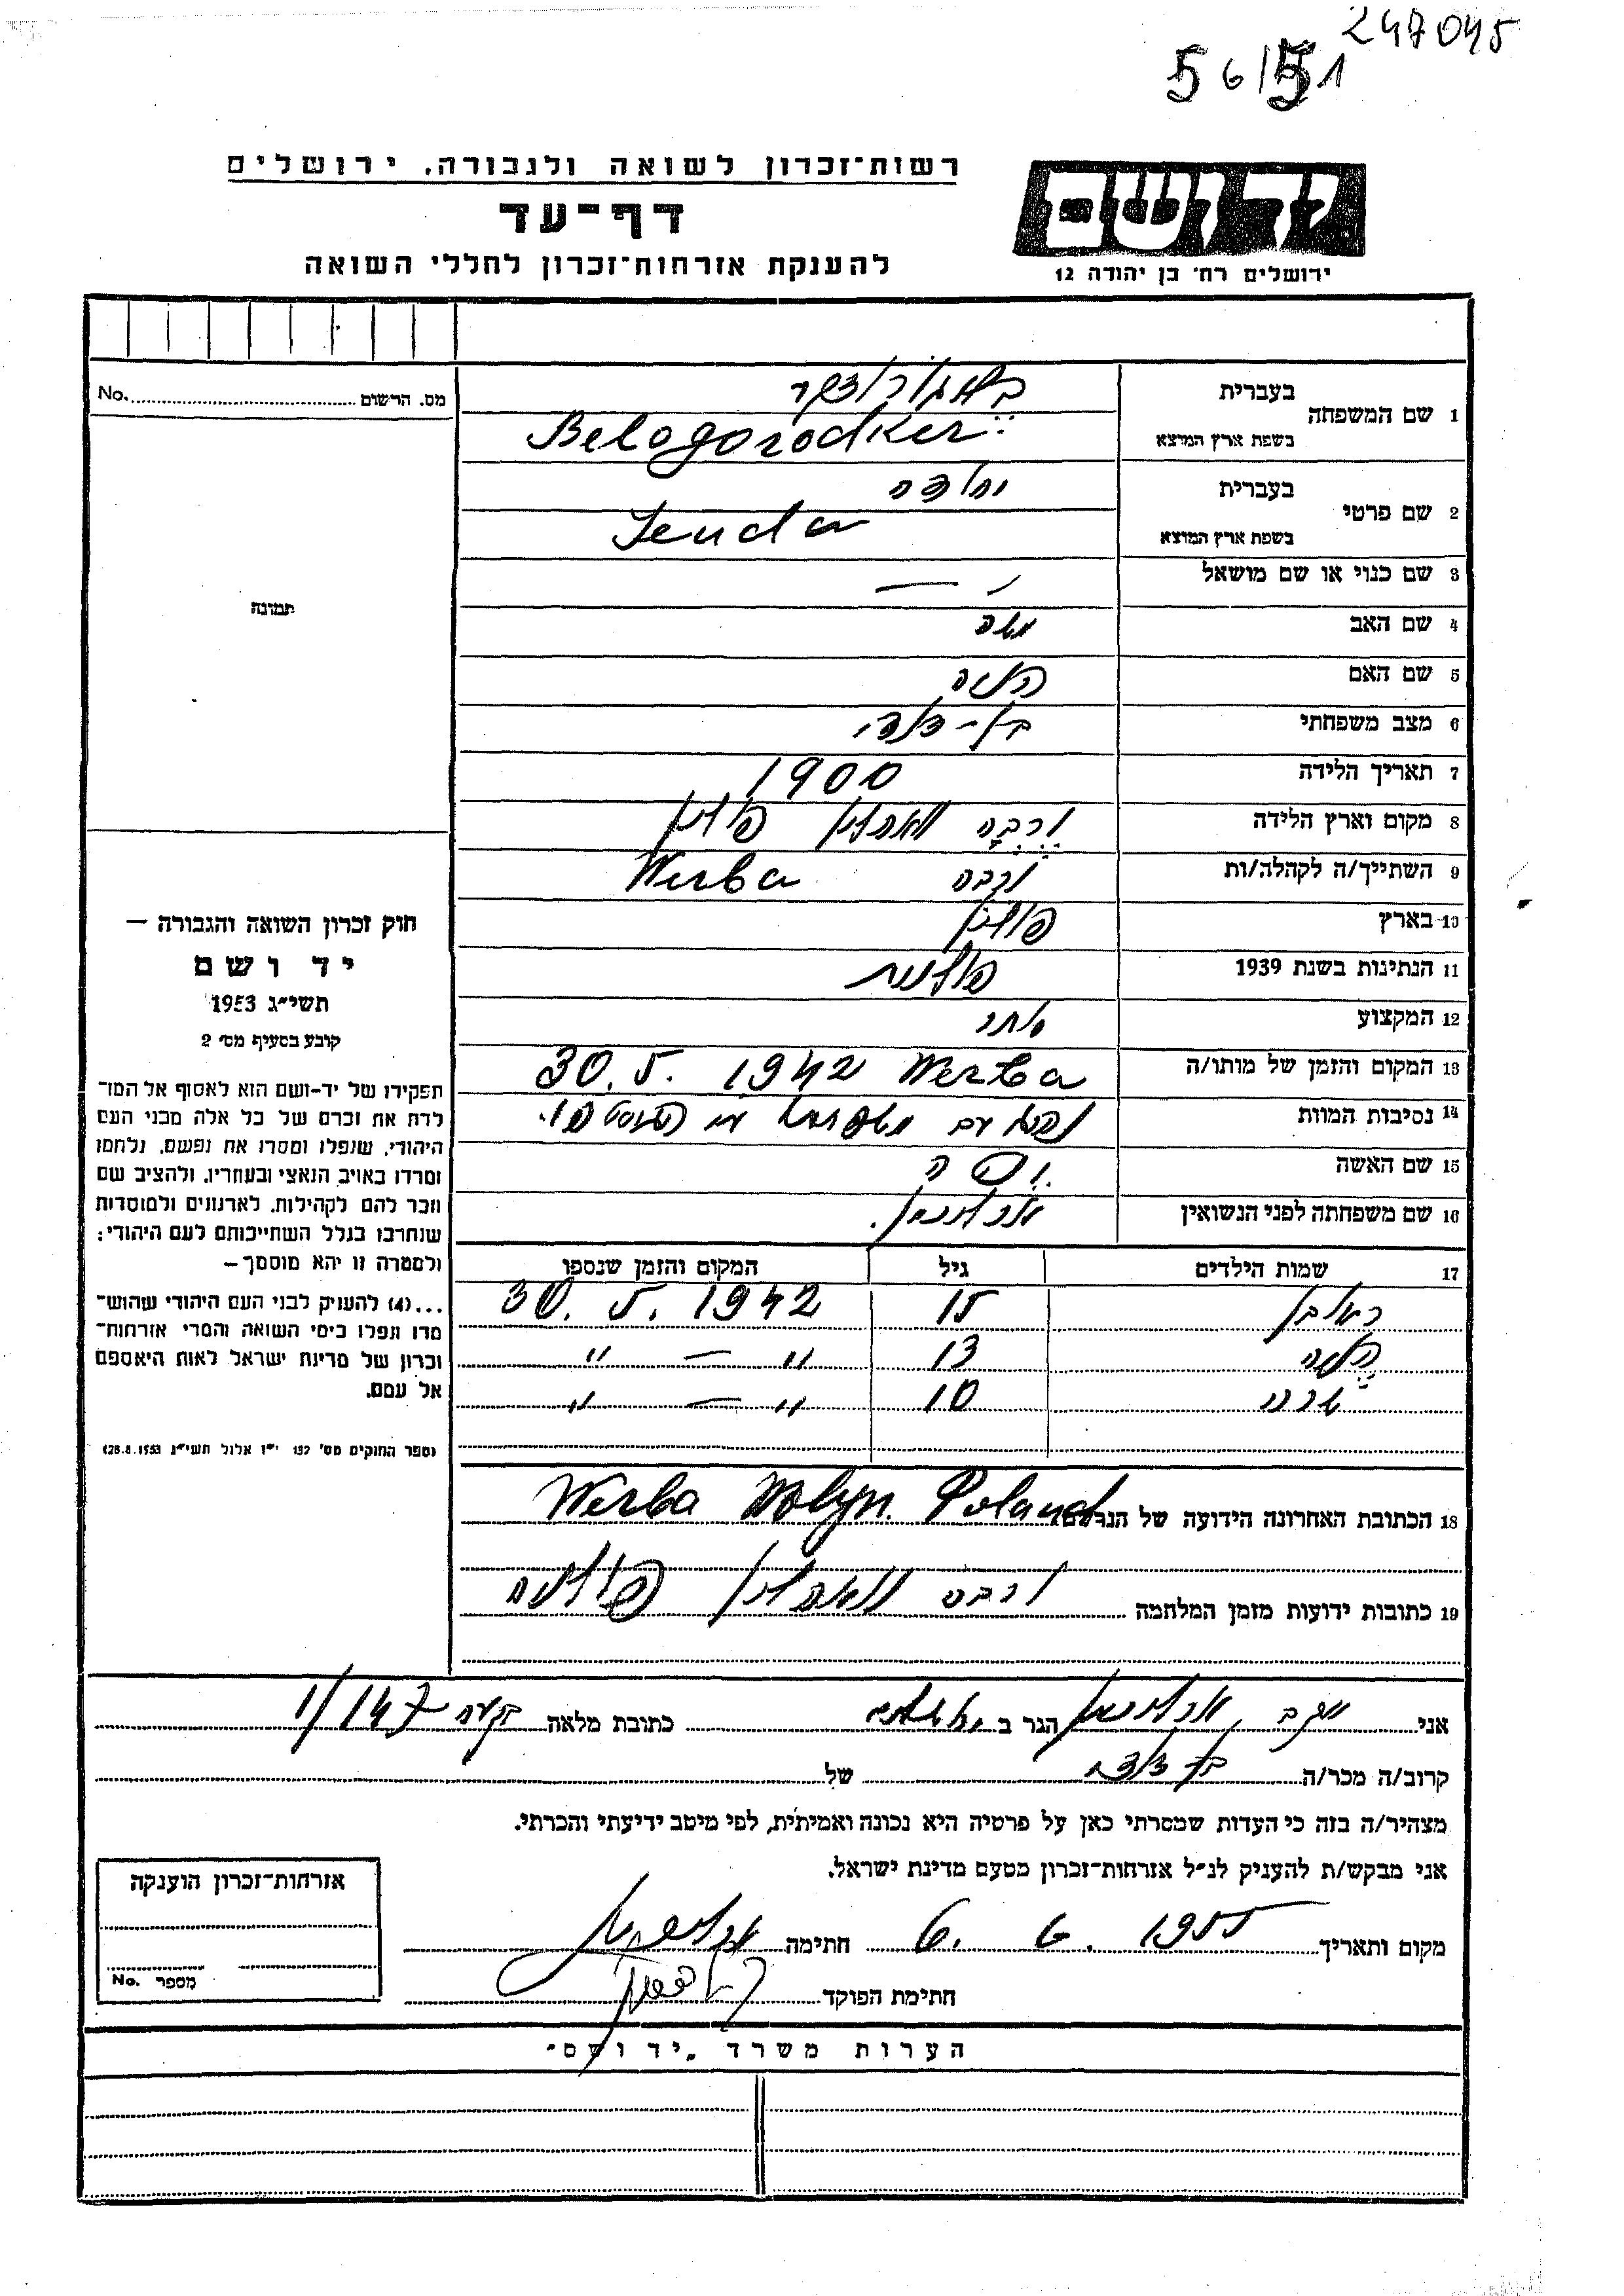 247045
56/51
רשות־זכרון לשואה ולגבורה, ירושלים
דף־עד
להענקת אזרחות־זכרון לחללי השואה
יד ושם
ירושלים רח׳ בן יהודה 12
מס. הרשום No.
1 שם המשפחה בעברית
בשפת ארץ המוצא Belogorodker
2 שם פרטי בעברית יהודה
בשפת ארץ המוצא Jeuda
3 שם כנוי או שם מושאל —
4 שם האב משה
5 שם האם
6 מצב משפחתי
7 תאריך הלידה 1900
8 מקום וארץ הלידה ורבה פולין
9 השתייך/ה לקהלה/ות ורבה Werba
10 בארץ פולין
11 הנתינות בשנת 1939 פולנית
12 המקצוע סוחר
13 המקום והזמן של מותו/ה Werba 30. 5. 1942
14 נסיבות המוות נהרג עם משפחתו
15 שם האשה
16 שם משפחתה לפני הנשואין
17 שמות הילדים גיל המקום והזמן שנספו
ראובן 15 30. 5. 1942
13 " — "
10 " — "
18 הכתובת האחרונה הידועה של הנרשם Werba Wolyn Poland
19 כתובות ידועות מזמן המלחמה ורבה פולניה
תמונה
חוק זכרון השואה והגבורה —
יד ושם
תשי״ג 1953
קובע בסעיף מס׳ 2
תפקידו של יד-ושם הוא לאסוף אל המו־
לדת את זכרם של כל אלה מבני העם
היהודי, שנפלו ומסרו את נפשם, נלחמו
ומרדו באויב הנאצי ובעוזריו, ולהציב שם
וזכר להם לקהילות, לארגונים ולמוסדות
שנחרבו בגלל השתייכותם לעם היהודי:
ולמטרה זו יהא מוסמך —
...(4) להעניק לבני העם היהודי שהוש־
מדו ונפלו בימי השואה והמרי אזרחות־
זכרון של מדינת ישראל לאות היאספם
אל עמם.
(ספר החוקים מס׳ 132 י״ז אלול תשי״ג 28.8.1953)
אני יעקב הגר ב כתובת מלאה 1/147
קרוב/ה מכר/ה של
מצהיר/ה בזה כי העדות שמסרתי כאן על פרטיה היא נכונה ואמיתית, לפי מיטב ידיעתי והכרתי.
אני מבקש/ת להעניק לנ״ל אזרחות־זכרון מטעם מדינת ישראל.
מקום ותאריך 6. 6. 1955 חתימה
חתימת הפוקד
אזרחות־זכרון הוענקה
מספר No.
הערות משרד „יד ושם״